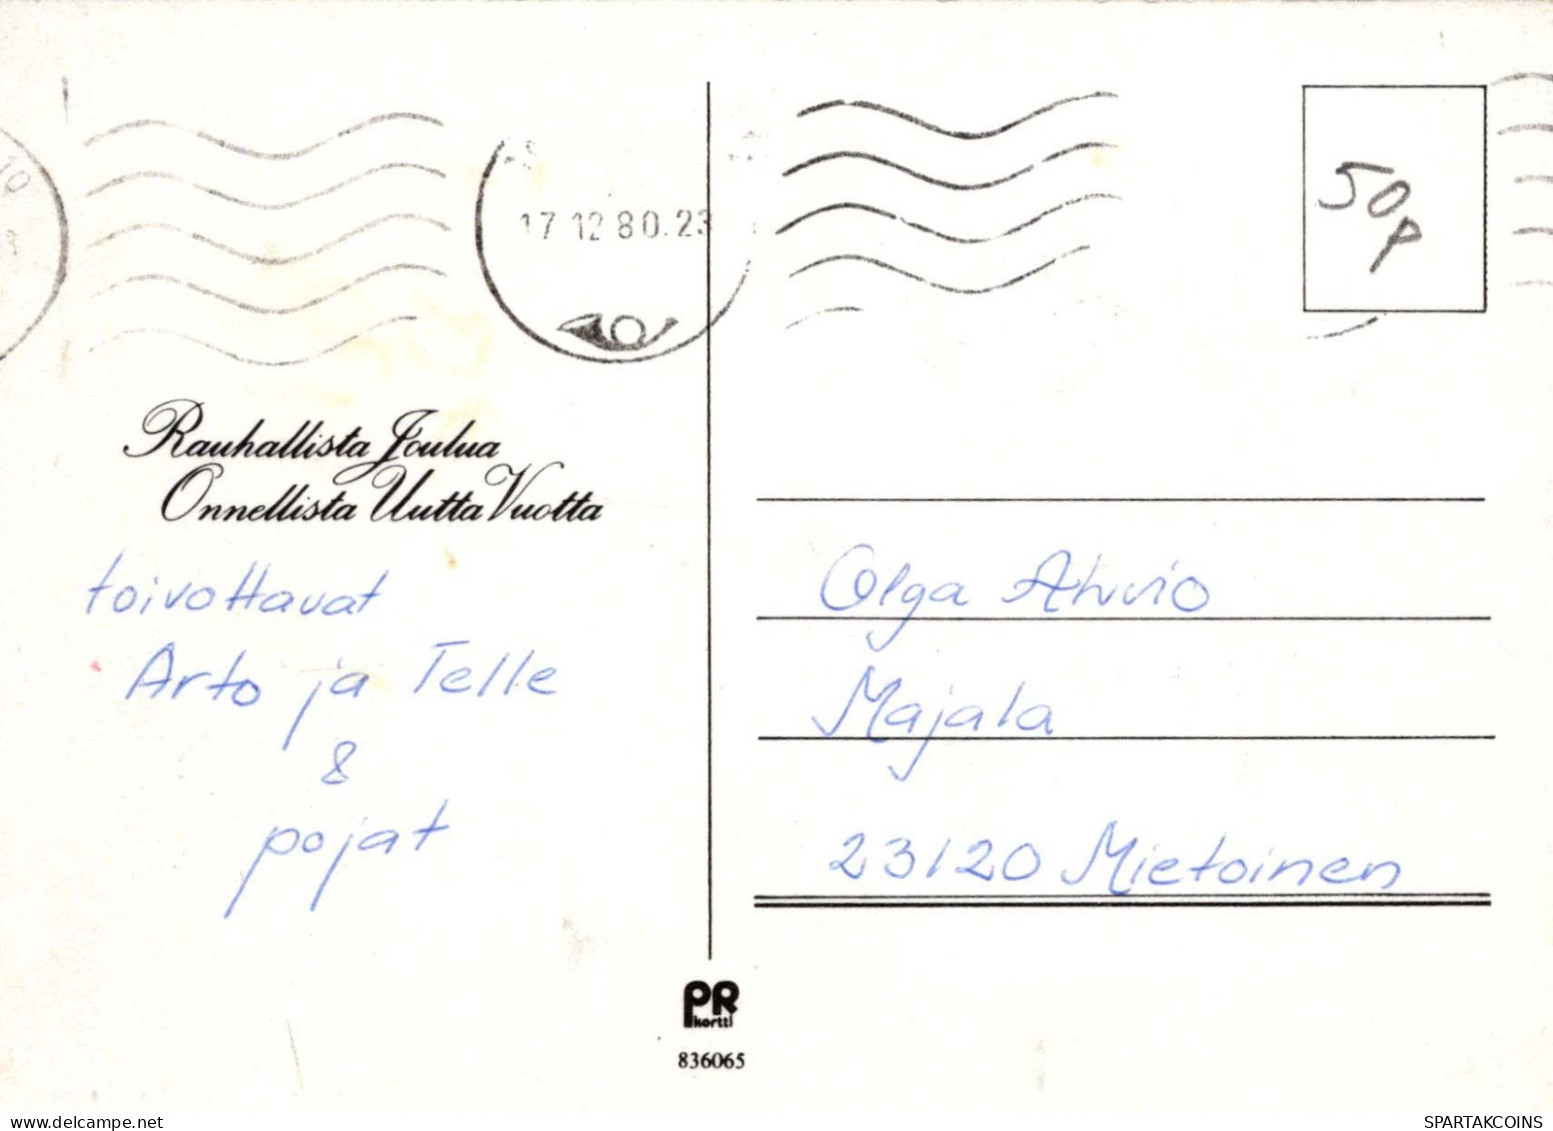 17 12 80.23
50p
Rauhallista Joulua
Onnellista Uutta Vuotta
toivottavat
Arto ja Telle
&
pojat
Olga Ahvio
Majala
23120 Mietoinen
PR
kortti
836065
delcampe.net
SPARTAKCOINS